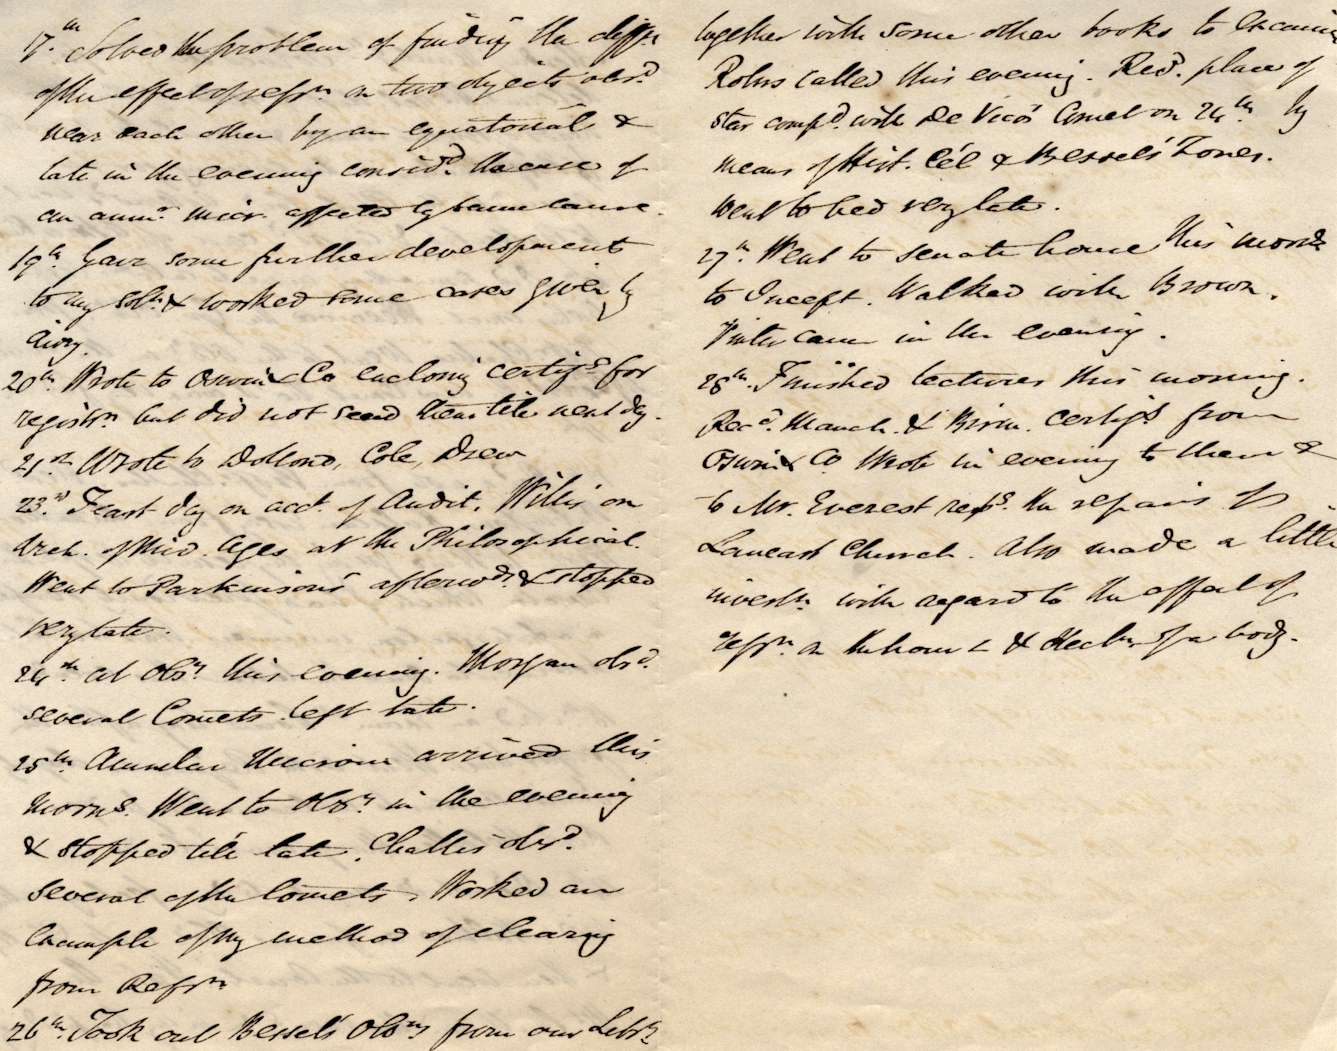 17th Solved the problem of finding the diffce
of the effect of refrn on two objects obsd
near each other by an equatorial &
late in the evening considd. the case of
an annr. micr. affected by same cause.
19th. Gave some further development
to my soln. & worked some cases given by
Airy.
20th. Wrote to Oswin & Co enclosing certifs for
registrn but did not send them till next day.
21st Wrote to Dollond, Cole, Drew
23rd. Feast day on acct. of Audit. Willis on
Arch. of Mid. Ages at the Philosophical.
Went to Parkinson's afterwds. & stopped
very late.
24th. at Obsy this evening. Morgan obsd.
several Comets. left late.
25th. Annular Microm arrived this
morng. Went to Obsy in the evening
& stopped till late. Challis obsd.
several of the Comets. Worked an
example of my method of clearing
from Refrn
26th. Took out Bessel's Obsns from our Liby
together with some other books to examine
Robus called this evening. Red. place of
star compd. with De Vico's Comet on 24th by
means of Hist. Cél & Bessel's Zones.
Went to bed very late.
27th Went to senate house this morng
to Incept. Walked with Brown.
came in the evening.
28th. Finished lectures this morning.
Recd. Manch. & Birm. certifs from
Oswin & Co. Wrote in evening to them &
to Mr. Everest respg. the repairs of
Lancast Church. Also made a little
investn. with regard to the effect of
refrn. on the hour ∠ & decln. of a body.